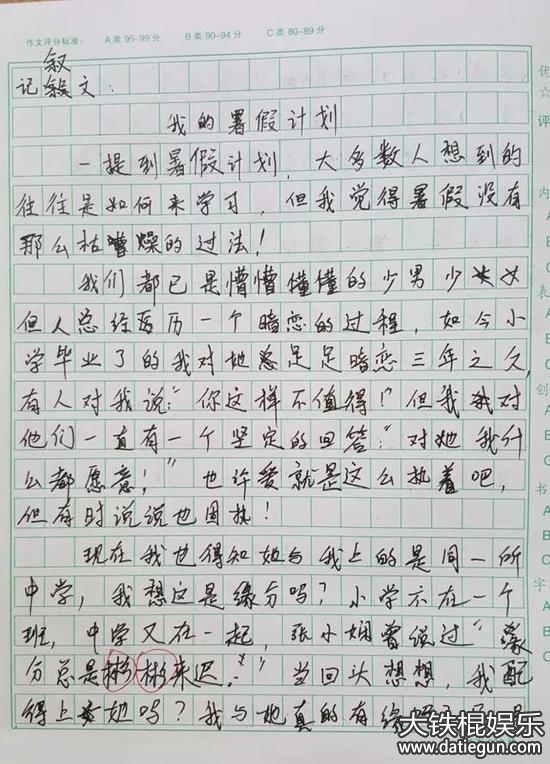 作文评分标准： A类 95-99分 B类 90-94分 C类 80-89分
叙
记 文：
我的暑假计划
一提到暑假计划，大多数人想到的
往往是如何来学习，但我觉得暑假没有
那么枯燥的过法！
我们都已是懵懵懂懂的少男少女
但人总经历一个暗恋的过程，如今小
学毕业了的我对她足足暗恋三年之久，
有人对我说：“你这样不值得！”但我对
他们一直有一个坚定的回答：“对她我什
么都愿意！”也许爱就是这么执着吧，
但有时说说也固执！
现在我也得知她与我上的是同一所
中学，我想这是缘分吗？小学不在一个
班，中学又在一起，张小娴曾说过“缘
分总是 来迟。”当回头想想，我配
得上她吗？我与她真的有缘
优
☆
评
内
A
B
C
表
A
B
C
创
A
B
C
书
A
B
C
字
A
B
C
大铁棍娱乐
www.datiegun.com